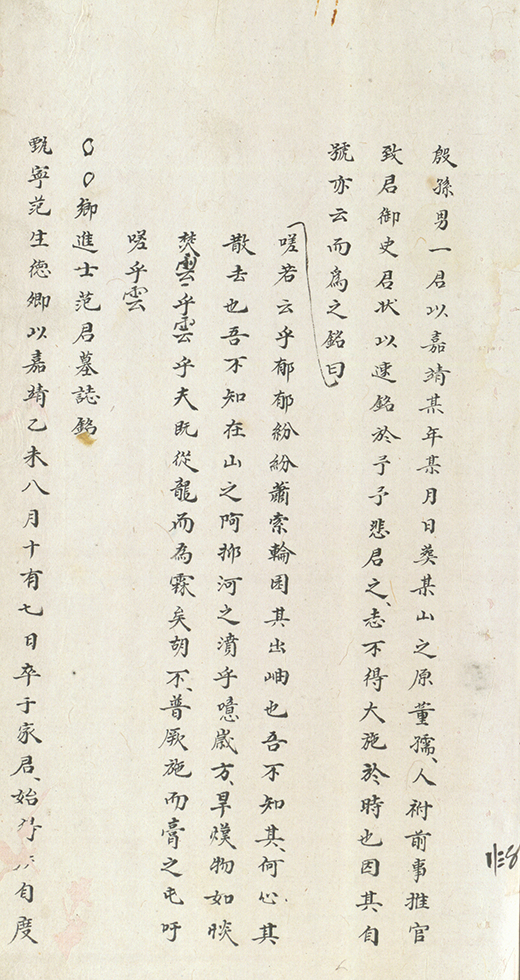 殷孫男一君以嘉靖某年某月日葬某山之原董孺人祔前事推官
致君御史君狀以速銘於予予悲君之志不得大施於時也因其自
號亦云而爲之銘曰
嗟若云乎郁郁紛紛蕭索輪囷其出岫也吾不知其何心其
散去也吾不知在山之阿抑河之濆乎噫嵗方旱熯物如惔
焚雲乎雲乎夫既從龍而為霖矣胡不普厥施而膏之屯吁
嗟乎雲
○○鄉進士范君墓誌銘
甄寧范生德卿以嘉靖乙未八月十有七日卒于家君始 自度